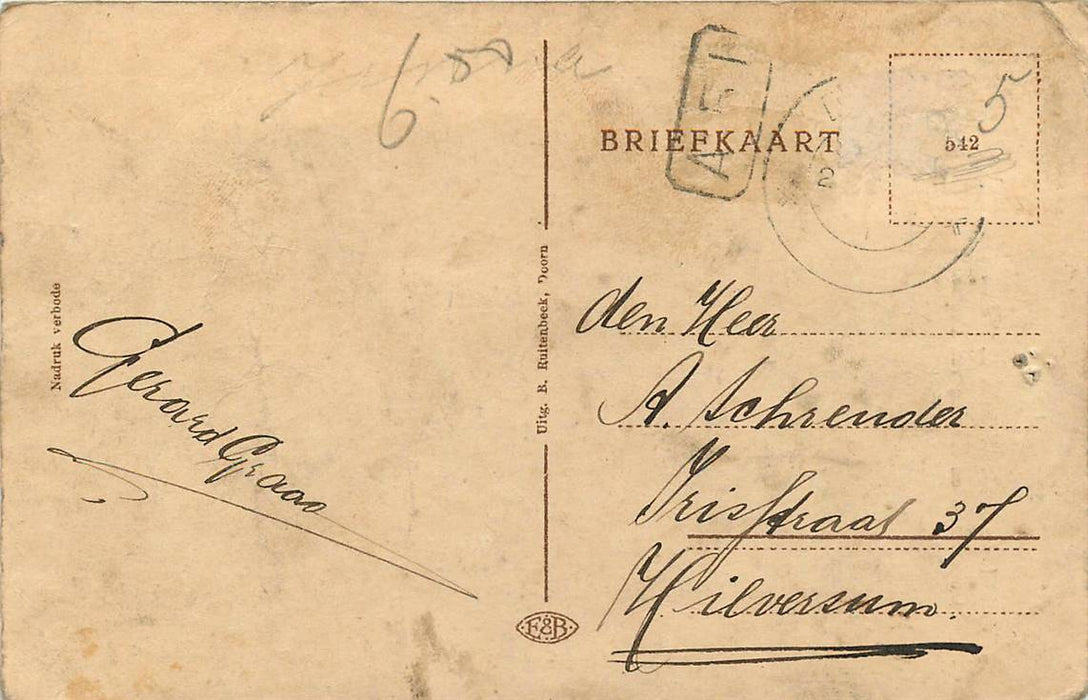 6.50
BRIEFKAART
542
5
Nadruk verbode
Uitg. B. Ruitenbeek, Doorn
Gerard Graao
den Heer
A. Schreuder
Irisstraat 37
Hilversum.
E&B